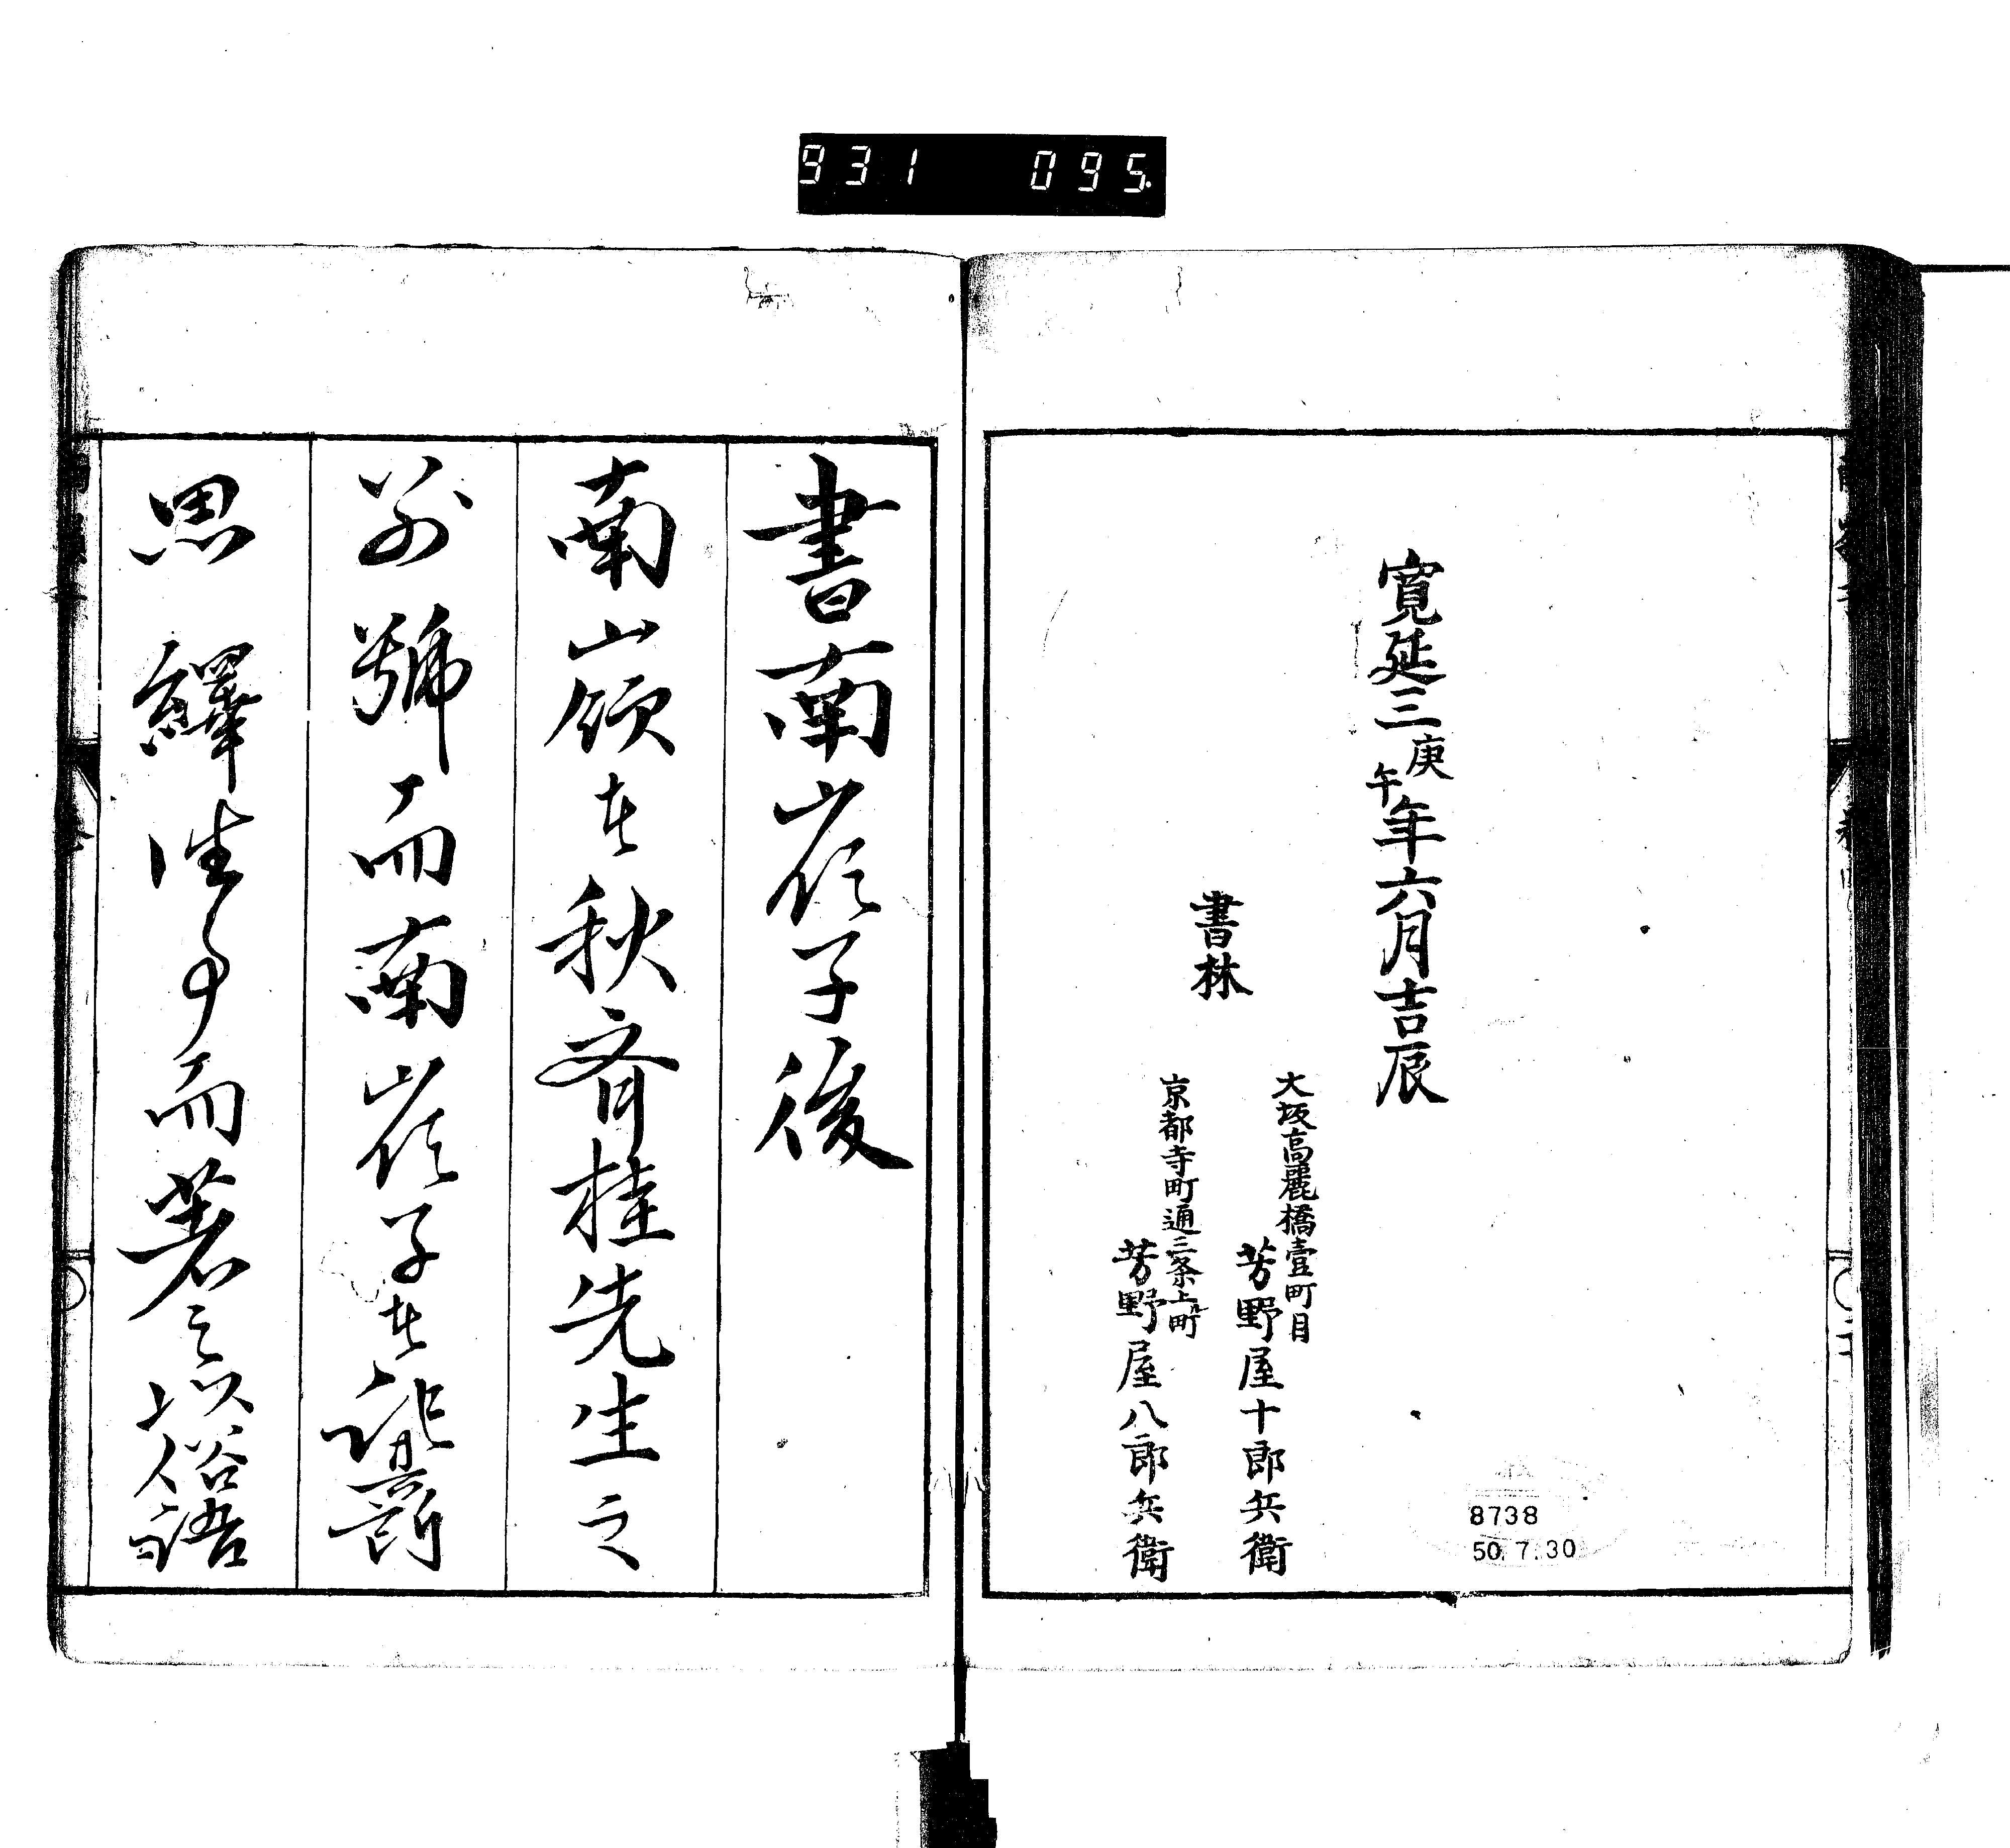 931 095.
寛延三庚午年六月吉辰
書林
大坂高麗橋壹町目
芳野屋十郎兵衛
京都寺町通三条上ル町
芳野屋八郎兵衛
8738
50.7.30
書南嶺子後
南嶺者秋齊桂先生之
別號而南嶺子者諸爵
思繹往事而著之以俗語